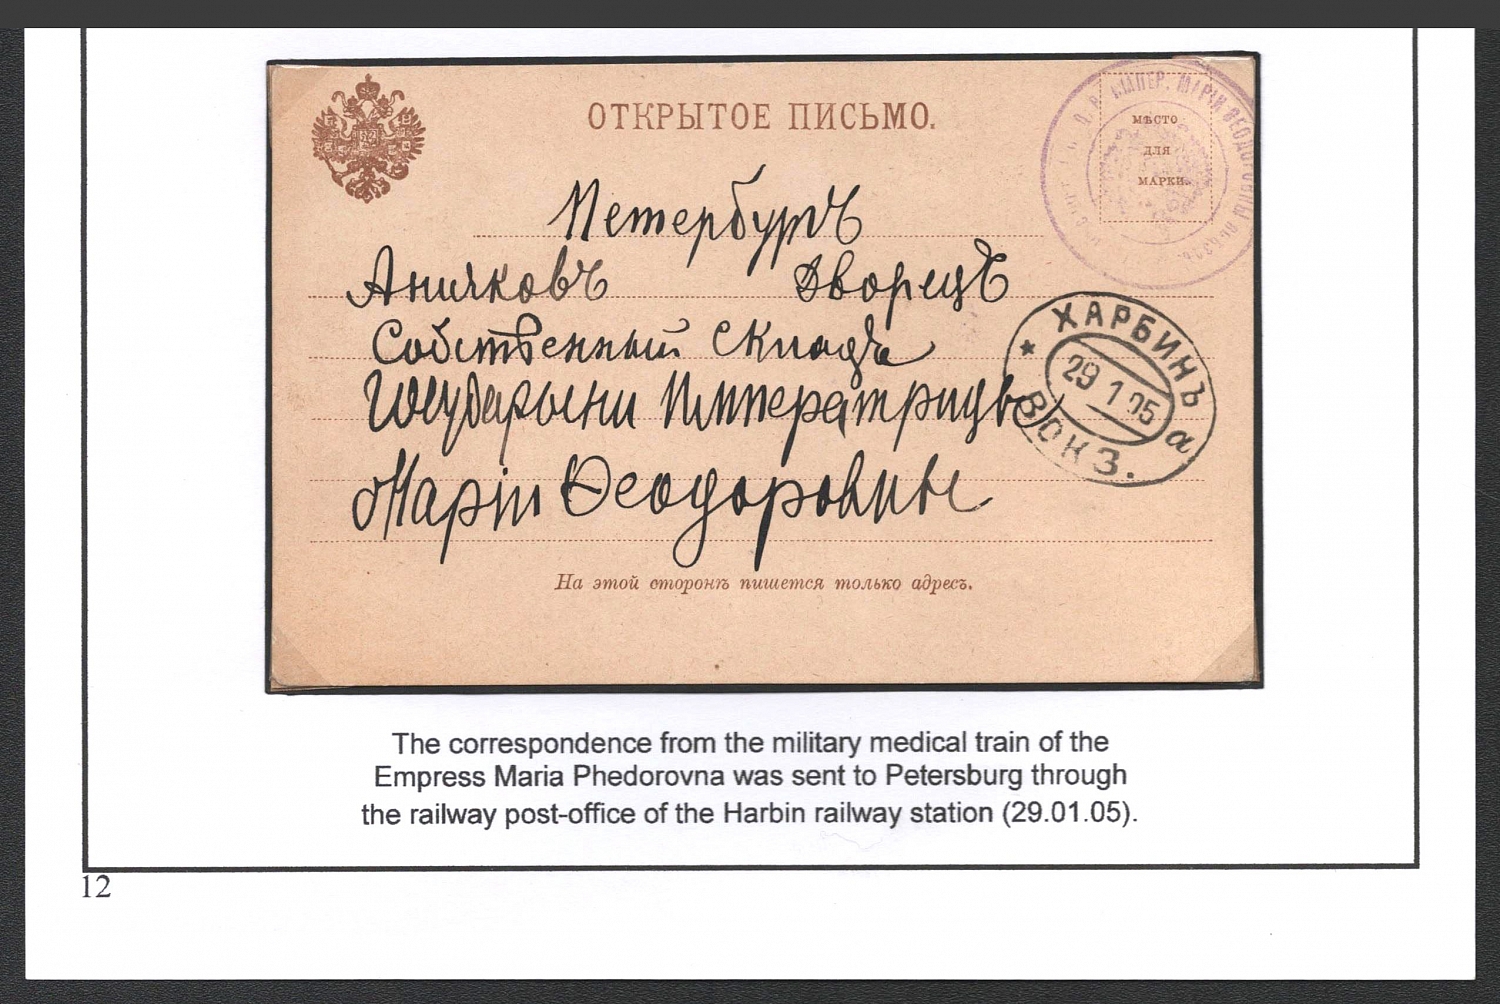 ОТКРЫТОЕ ПИСЬМО.
ИМПЕР. МАРІИ ФЕОДОРОВНЫ
МѢСТО
ДЛЯ
МАРКИ.
Петербургъ
Аничковъ Дворецъ
Собственный Складъ
Государыни Императрицы
Маріи Феодоровны
ХАРБИНЪ
29 1 05
ВОКЗ.
а
На этой сторонѣ пишется только адресъ.
The correspondence from the military medical train of the
Empress Maria Phedorovna was sent to Petersburg through
the railway post-office of the Harbin railway station (29.01.05).
12